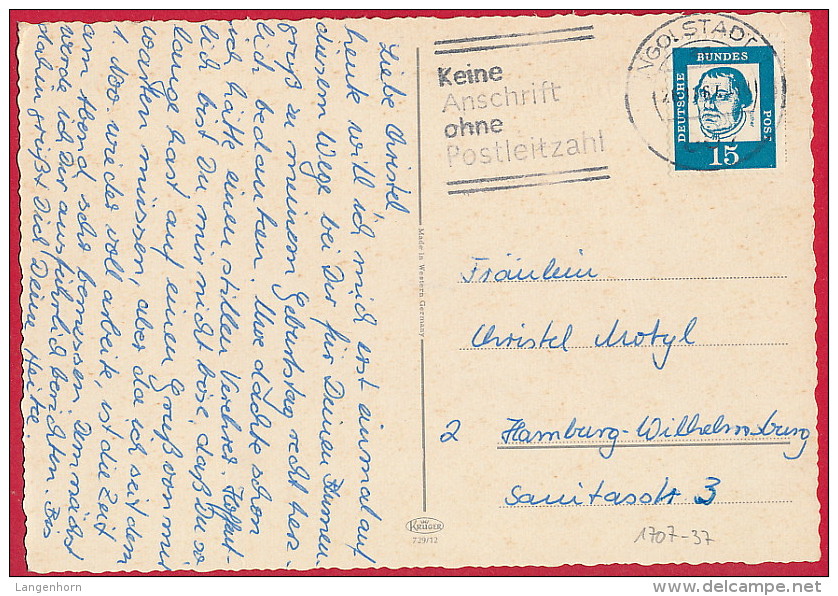 Liebe Christel
heute will ich mich erst einmal auf
diesem Wege bei Dir für Deinen Blumen-
gruß zu meinem Geburtstag recht herz-
lich bedanken. Ihre dachte schon
ich hätte einen stillen Verehrer. Hoffent-
lich bist Du mir nicht böse, daß Du so
lange hast auf einen Gruß von mir
warten müssen, aber da ich seit dem
1. Nov. wieder voll arbeite, ist die Zeit
am Abend sehr bemessen. Demnächst
werde ich Dir ausführlich berichten. Bis
dahin grüßt Dich Deine Heike.
Made in Western Germany
KRÜGER
729/12
Keine
Anschrift
ohne
Postleitzahl
INGOLSTADT
DEUTSCHE BUNDES POST
15
Fräulein
Christel Motyl
2 Hamburg-Wilhelmsburg
Sanitasstr. 3
1707-37
Langenhorn
delcampe.net